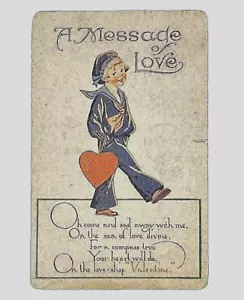 A Message
of
Love
Oh come and sail away with me,
On the sea of love divine,
For a compass true
Your heart will do,
On the love-ship "Valentine."